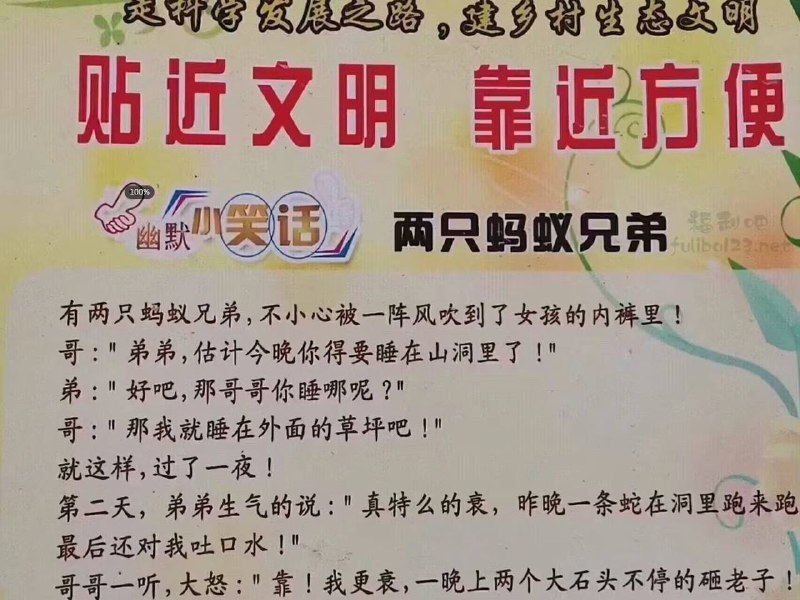 走科学发展之路，建乡村生态文明
贴近文明 靠近方便
100%
幽默小笑话
两只蚂蚁兄弟
福利吧
fulibo123.net
有两只蚂蚁兄弟,不小心被一阵风吹到了女孩的内裤里！
哥："弟弟,估计今晚你得要睡在山洞里了！"
弟："好吧,那哥哥你睡哪呢？"
哥："那我就睡在外面的草坪吧！"
就这样,过了一夜！
第二天，弟弟生气的说："真特么的衰，昨晚一条蛇在洞里跑来跑
最后还对我吐口水！"
哥哥一听,大怒："靠！我更衰,一晚上两个大石头不停的砸老子！